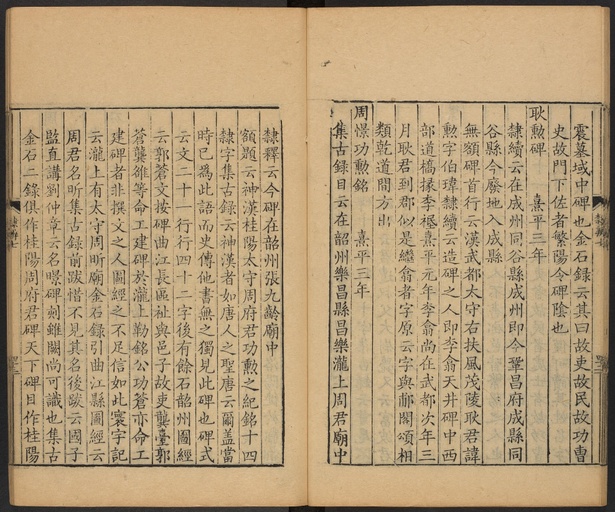 震墓域中碑也金石錄云其曰故吏故民故功曹
史故門下佐者繁陽令碑陰也
耿勳碑　熹平三年
隸續云在成州同谷縣成州即今鞏昌府成縣同
谷縣今廢地入成縣
無額碑首行云漢武都太守右扶風茂陵耿君諱
勳字伯瑋隸續云造碑之人即李翕天井碑中西
部道橋掾李禔熹平元年李翕尚在武都次年三
月耿君到郡似是繼翕者字原云字與郙閣頌相
類乾道間方出
周憬功勲銘　熹平三年
集古錄目云在韶州樂昌縣昌樂瀧上周君廟中
隸釋云今碑在韶州張九齡廟中
額題云神漢桂陽太守周府君功勲之紀銘十四
隸字集古錄云神漢者如唐人之聖唐云爾蓋當
時已爲此語而史傳他書無之獨見此碑也碑式
云文二十一行行四十二字後有餘石韶州圖經
云郭蒼文按碑曲江長區祉與邑子故吏龔臺郭
蒼龔雒等命工建碑於瀧上勒銘公功蒼亦命工
建碑者非撰文之人圖經之不足信如此寰宇記
云瀧上有太守周昕廟金石錄引曲江縣圖經云
周君名昕集古錄前跋惜不見其名後跋云國子
監直講劉仲章云名曔碑刓雖闕尚可識也集古
金石二錄俱作桂陽周府君碑天下碑目作桂陽